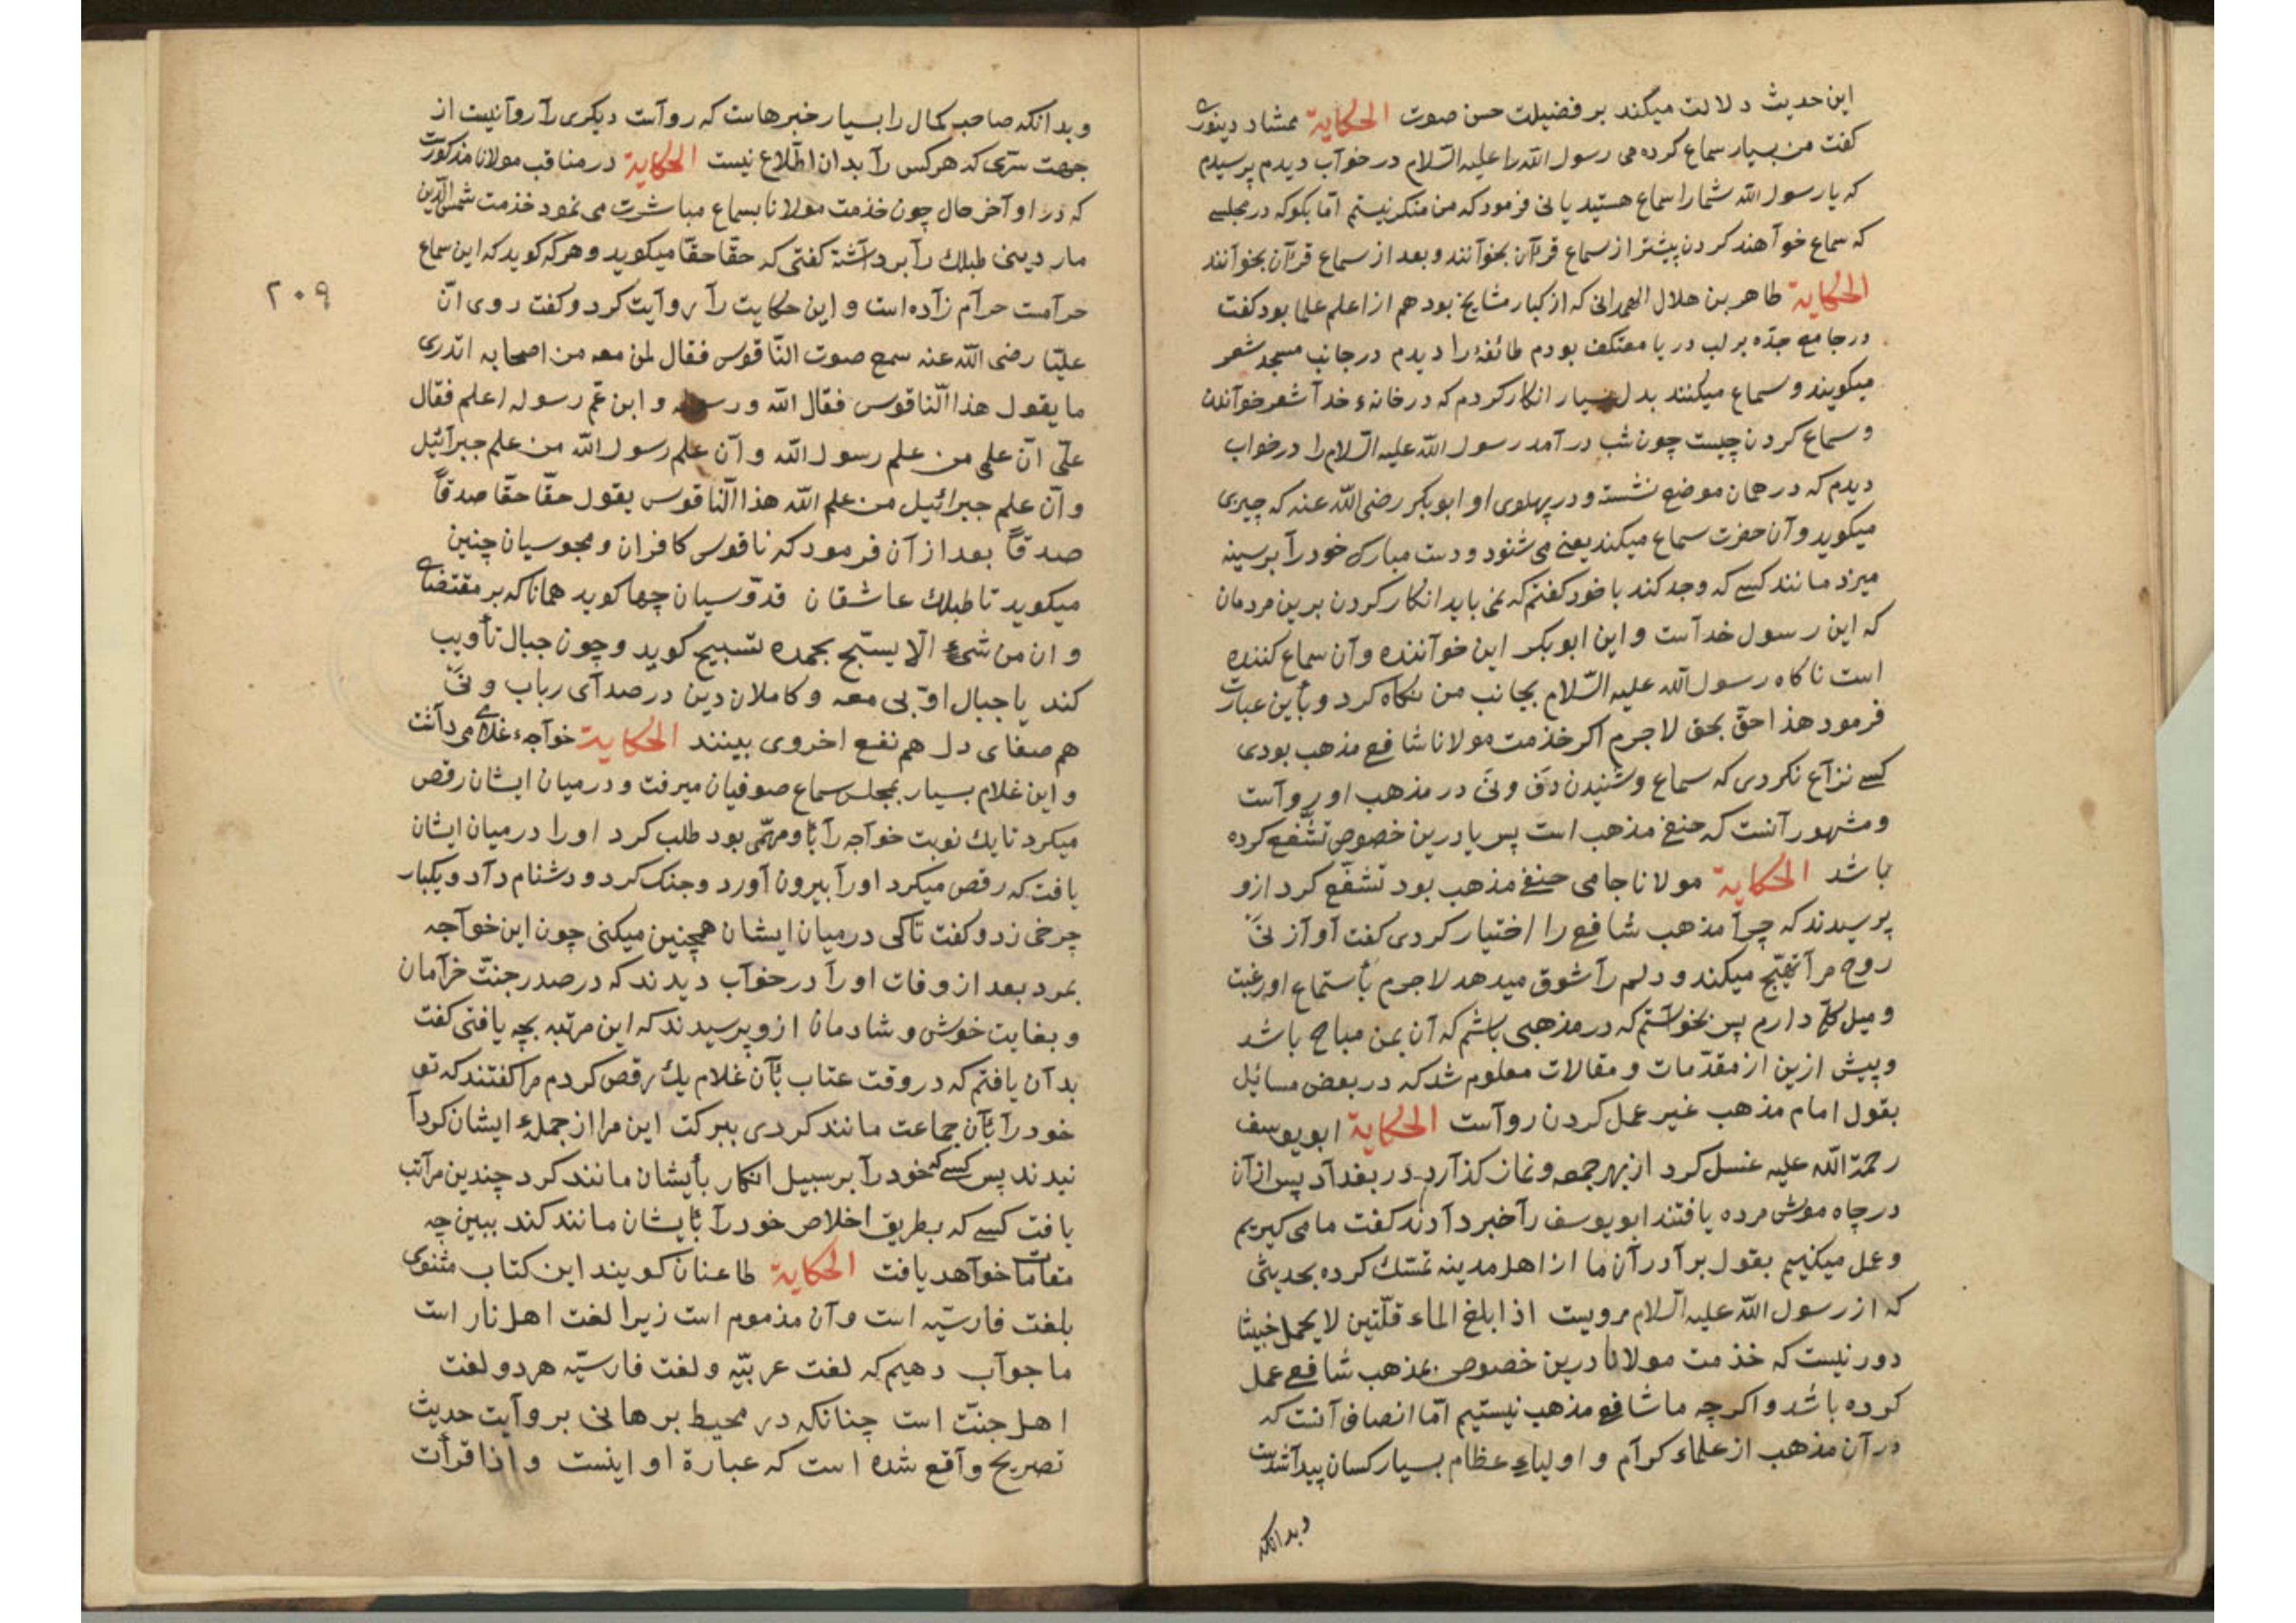 این حدیث دلالت میکند بر فضیلت حسن صوت الحکایة ممشاد دینوری
کفت من بسیار سماع کرده می رسول الله را علیه السّلام در خوآب دیدم پرسیدم
که یا رسول الله شما را سماع هستید یا نی فرمود که من منکر نیستم امّا بکو که در مجلسی
که سماع خوآهند کردن پیشتر از سماع قرآن بخوآنند و بعد از سماع قرآن بخوآنند
الحکایة طاهر بن هلال الهمدانی که از کبار مشایخ بود هم از اعلم علما بود کفت
در جامع جدّه بر لب دریا معتکف بودم طائفهٔ را دیدم در جانب مسجد شعر
میکویند و سماع میکنند بدل بسیار انکار کردم که در خانهء خدآ شعر خوآندن
و سماع کردن چیست چون شب در آمد رسول الله علیه السّلام را در خواب
دیدم که در همان موضع نشسته و در پهلوی او ابوبکر رضی الله عنه که چیزی
میکوید و آن حضرت سماع میکند یعنی می شنود و دست مبارک خود رآ بر سینه
میزد مانند کسی که وجد کند با خود کفتم که نمی باید انکار کردن برین مردمان
که این رسول خدآست و این ابوبکر این خوآننده و آن سماع کننده
است ناکاه رسول الله علیه السّلام بجانب من نکاه کرد و بأین عبارت
فرمود هذا حقّ بحق لاجرم اکر خذمت مولانا شافعی مذهب بودی
کسی نزآع نکردی که سماع و شنیدن دفّ و نیّ در مذهب او روآست
و مشهور آنست که حنفی مذهب است پس یا درین خصوص تشفّع کرده
باشد الحکایة مولانا جامی حنفی مذهب بود تشفّع کرد ازو
پرسیدند که چرآ مذهب شافعی را اختیار کردی کفت آوآز نیّ
روح مرآ تهیّج میکند و دلم رآ شوق میدهد لاجرم بأستماع او رغبت
و میل کلّی دارم پس بخوآستم که در مذهبی باشم که آن بمن مباح باشد
و پیش ازین از مقدّمات و مقالات معلوم شد که در بعض مسائل
بقول امام مذهب غیر عمل کردن روآست الحکایة ابو یوسف
رحمة الله علیه غسل کرد از بهر جمعه و نماز کذآرد در بغدآد پس از آن
در چاه موش مرده یافتند ابو یوسف رآ خبر دآدند کفت ما می کیریم
و عمل میکنیم بقول برآدرآن ما از اهل مدینه تمسّک کرده بحدیثی
که از رسول الله علیه السّلام مرویست اذا بلغ الماء قلّتین لا یحمل خبیثا
دور نیست که خذمت مولانا درین خصوص بمذهب شافعی عمل
کرده باشد و اکرچه ما شافعی مذهب نیستیم امّا انصاف آنست که
در آن مذهب از علماء کرآم و اولیاء عظام بسیار کسان پیدآ شدست
وبدانکه
وبدانکه صاحب کمال را بسیار خبرهاست که روآست دیکری رآ روآ نیست از
جهت سرّی که هرکس رآ بدان اطّلاع نیست الحکایة در مناقب مولانا مذکورست
که در اوآخر حال چون خذمت مولانا بسماع مباشرت می نمود خذمت شمس الدّین
ماردینی طبلک رآ بردآشته کفتی که حقّا حقّا میکوید و هرکه کوید که این سماع
حرآمست حرآم زآده است و این حکایت رآ روآیت کرد و کفت روی انّ
علیّا رضی الله عنه سمع صوت النّاقوس فقال لمن معه من اصحابه اتدری
ما یقول هذا النّاقوس فقال الله و رسوله و ابن عمّ رسوله اعلم فقال
علیّ انّ علمی من علم رسول الله و آن علم رسول الله من علم جبرآئیل
و آن علم جبرائیل من علم الله هذا النّاقوس یقول حقّا حقّا صدقاً
صدقاً بعد از آن فرمود که ناقوس کافران و مجوسیان چنین
میکوید تا طبلک عاشقان قدّوسیان چها کوید همانا که بر مقتضای
و ان من شیء الّا یسبّح بحمده تسبیح کوید و چون جبال تأویب
کند یا جبال اوّبی معه و کاملان دین در صدآی رباب و نیّ
هم صفای دل هم نفع اخروی بینند الحکایة خوآجهء غلامی دآشت
و این غلام بسیار بمجلس سماع صوفیان میرفت و در میان ایشان رقص
میکرد تا یک نوبت خوآجه رآ بأو مهمّی بود طلب کرد او را در میان ایشان
یافت که رقص میکرد او رآ بیرون آورد و جنک کرد و دشنام دآد و یکبار
چرخی زد و کفت تا کی در میان ایشان همچنین میکنی چون این خوآجه
بمرد بعد از وفات او رآ در خوآب دیدند که در صدر جنّت خرآمان
و بغایت خوش و شادمان ازو پرسیدند که این مرتبه بچه یافتی کفت
بدآن یافتم که در وقت عتاب بأن غلام یک رقص کردم مرا کفتند که تو
خود رآ بأن جماعت مانند کردی ببرکت این مرا از جملهء ایشان کردآ
نیدند پس کسی که خود رآ بر سبیل انکار بأیشان مانند کرد چندین مرآتب
یافت کسی که بطریق اخلاص خود رآ بأیشان مانند کند ببین چه
مقامات خوآهد یافت الحکایة طاعنان کویند این کتاب مثنوی
بلغت فارسیّه است و آن مذموم است زیرا لغت اهل نار است
ما جوآب دهیم که لغت عربیّه و لغت فارسیّه هر دو لغت
اهل جنّت است چنانکه در محیط برهانی بروآیت حدیث
تصریح وآقع شده است که عبارة او اینست و اذا قرأت
٢٠٩